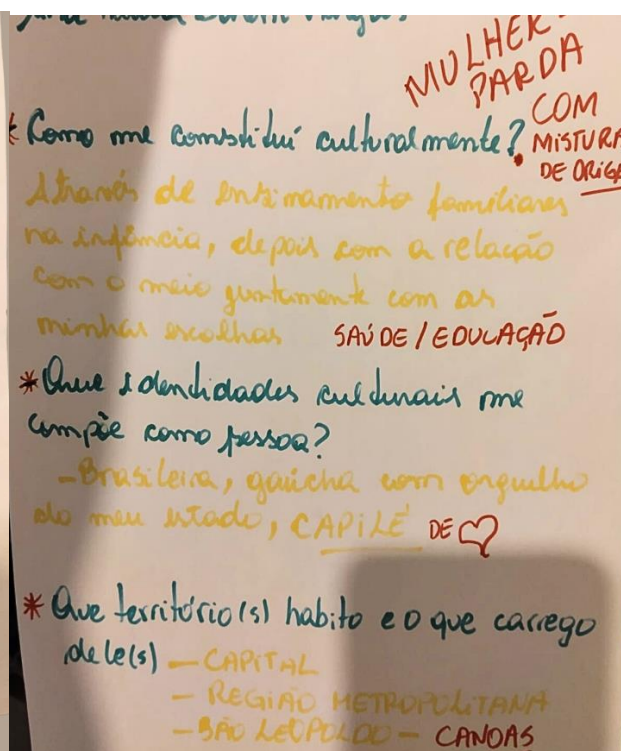 MULHER
PARDA
COM
MISTURA
DE ORIGE
* Como me constituí culturalmente?
Através de ensinamento familiares
na infância, depois com a relação
com o meio juntamente com as
minhas escolhas SAÚDE / EDUCAÇÃO
* Que identidades culturais me
compõe como pessoa?
- Brasileira, gaúcha com orgulho
do meu estado, CAPILÉ DE ♡
* Que território(s) habito e o que carrego
dele(s) — CAPITAL
— REGIÃO METROPOLITANA
— SÃO LEOPOLDO — CANOAS